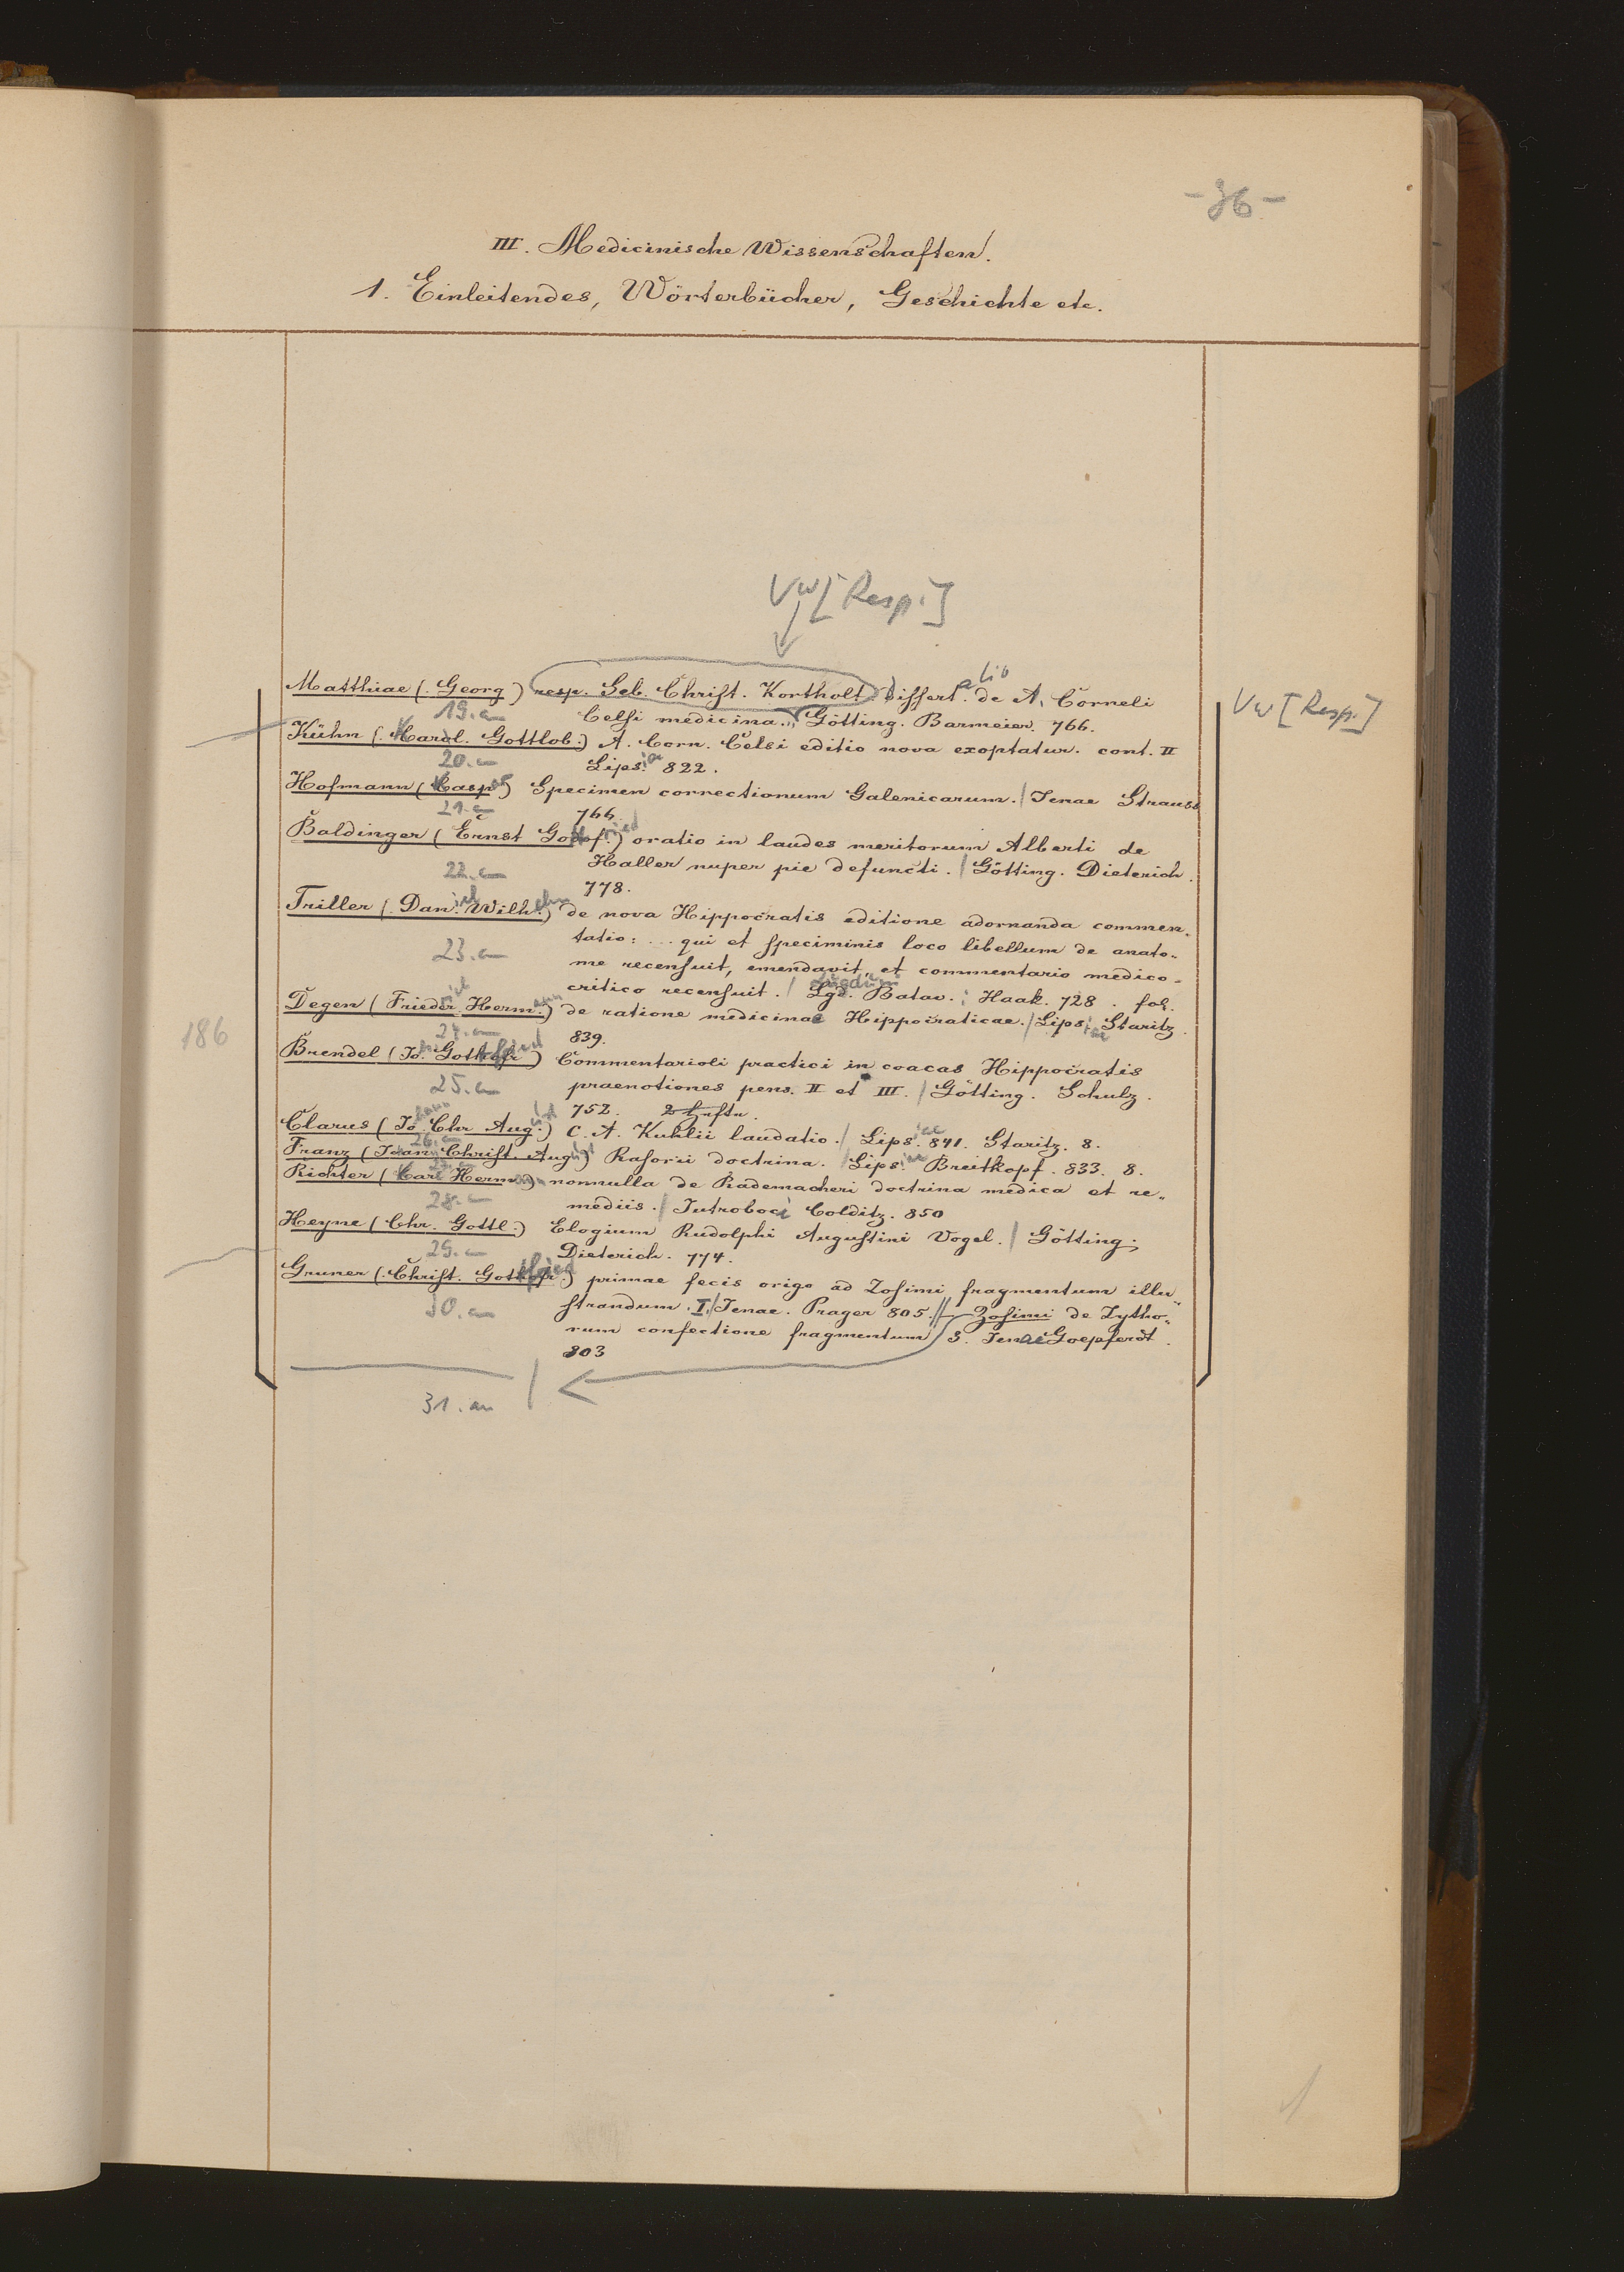 -36-
III. Medicinische Wissenschaften.
1. Einleitendes, Wörterbücher, Geschichte etc.
Vw [Resp.]
Matthiae (Georg) resp. Seb. Christ. Kortholt Dissertatio de A. Corneli
19. an Celsi medicina. Götting. Barmeier. 766.
Vw [Resp.]
Kühn (Karl Gottlob.) A. Corn. Celsi editio nova exoptatur. cont. II
20. an Lipsiae 822.
Hofmann (Caspar) Specimen correctionum Galenicarum. / Jenae Strauss
21. an 766.
Baldinger (Ernst Gottfried) oratio in laudes meritorum Alberti de
22. an Haller nuper pie defuncti. / Götting. Dieterich.
778.
Triller (Daniel Wilhelm) de nova Hippocratis editione adornanda commen-
tatio: ... qui et speciminis loco libellum de anato-
23. an me recensuit, emendavit, et commentario medico-
critico recensuit. / Lugduni Batav.; Haak. 728. fol.
Degen (Friedrich Hermann) de ratione medicinae Hippocraticae. / Lipsiae Staritz.
186
24. an 839.
Brendel (Jo. Gottfried) Commentarioli practici in coacas Hippocratis
25. an praenotiones pens. II et III. / Götting. Schulz.
752.
Clarus (Johann Chr August) C. A. Kuhlii laudatio. / Lipsiae 841. Staritz. 8.
26. an
Franz (Joan. Christ. August) Rasorii doctrina. / Lipsiae Breitkopf. 833. 8.
Richter (Carl Hermann) nonnulla de Rademacheri doctrina medica et re-
28. an mediis. / Jutroboci Colditz. 850
Heyne (Chr. Gottl.) Elogium Rudolphi Augustini Vogel. / Götting;
29. an Dieterich. 774.
Gruner (Christ. Gottfried) primae fecis origo ad Zosimi fragmentum illu-
30. an strandum. I. / Jenae. Prager 805. // Zosimi de Zytho-
rum confectione fragmentum / S. Jenae Goepferdt.
803
31. an
1